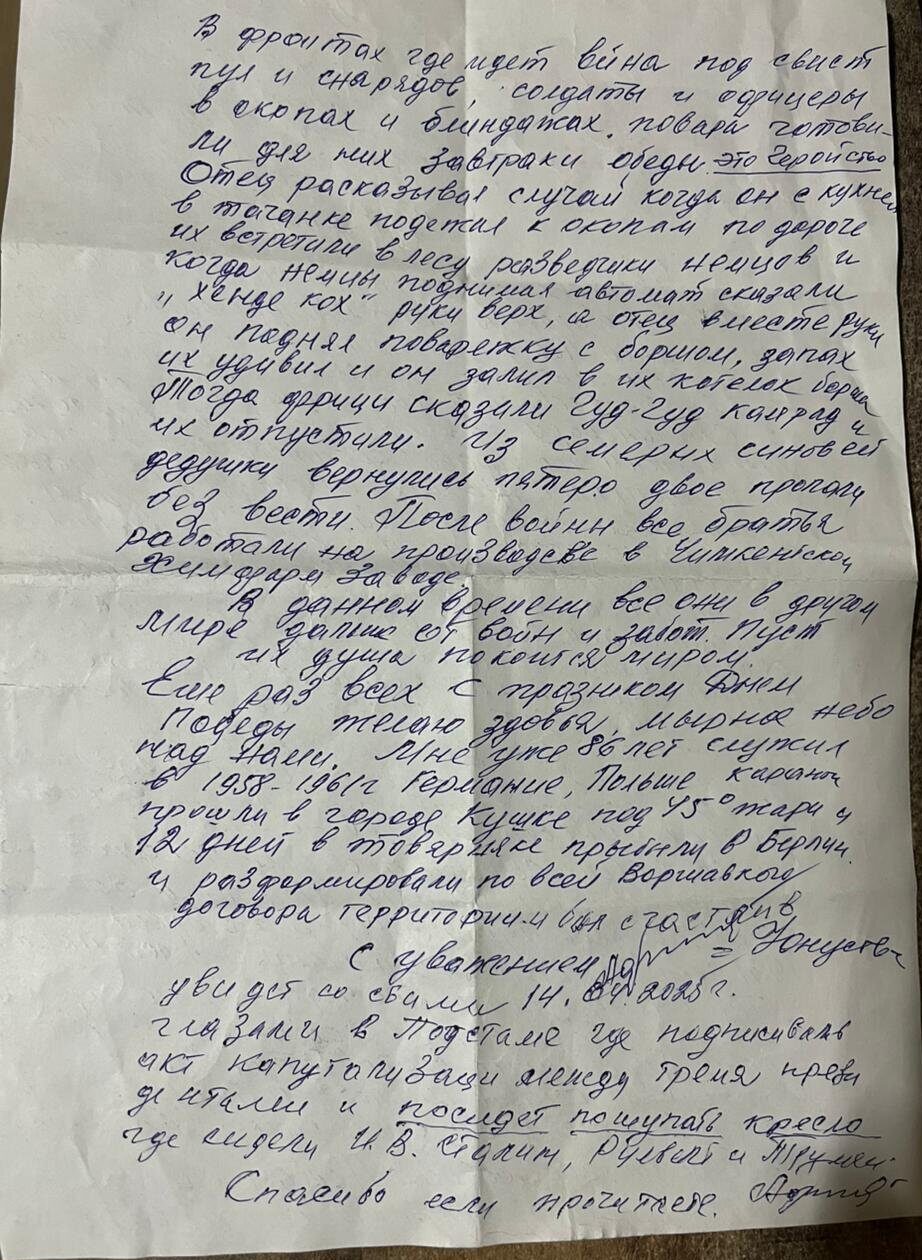 В фронтах где идет война под свист
пул и снарядов, солдаты и офицеры
в окопах и блиндажах, повара готови-
ли для них завтраки обеды это геройство
Отец расказывал случай когда он с кухней
в тачанке подежал к окопам по дороге
их встретили в лесу разведчики немцов и
когда немцы поднимая автомат сказали
„хенде кох" руки верх, а отец вместе руки
он поднял поварежку с боршом, запах
их удивил и он залил в их котелок борша
Тогда фрици сказали Гуд-Гуд камрад и
их отпустили. Из семерых синовей
дедушки вернулись пятеро двое пропали
без вести. После войнн все братья
работали на производсве в Чимкентской
химфарм заводе.
В данном времени все они в другом
мире далше от войн и забот. Пуст
их душа покоится миром.
Еше раз всех с празником Днем
Победы желаю здовья, мырное небо
над нами. Мне уже 86 лет служил
в 1958-1961г Германие, Польше
прошли в городе Кушке под 45° жари и
12 дней в товарняке прыбыли в Берлин
и разформировали по всей Варшавкого
договора территориим был счастлив
С уважением = Юнуствь
увидет со своими 14. 04. 2025г.
глазами в Подстаме где подписивать
акт капутализаци между тремя прези
дентами и посидет пощупать кресло
где сидели И.В. Сталин, Рузвелт и Трумен.
Спасибо если прочитаете.